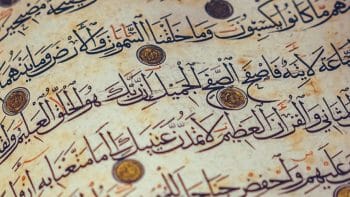 صيحة مصبحين
هم ما كانوا يكسبون وما خلقنا السموت والأرض وما بينهما
اعة لآتية فاصفح الصفح الجميل إن ربك هو الخلق العليم ولقد
المثاني والقرآن العظيم لا تمدن عينيك إلى ما متعنا به أزوا
عليهم واخفض جناحك للمو